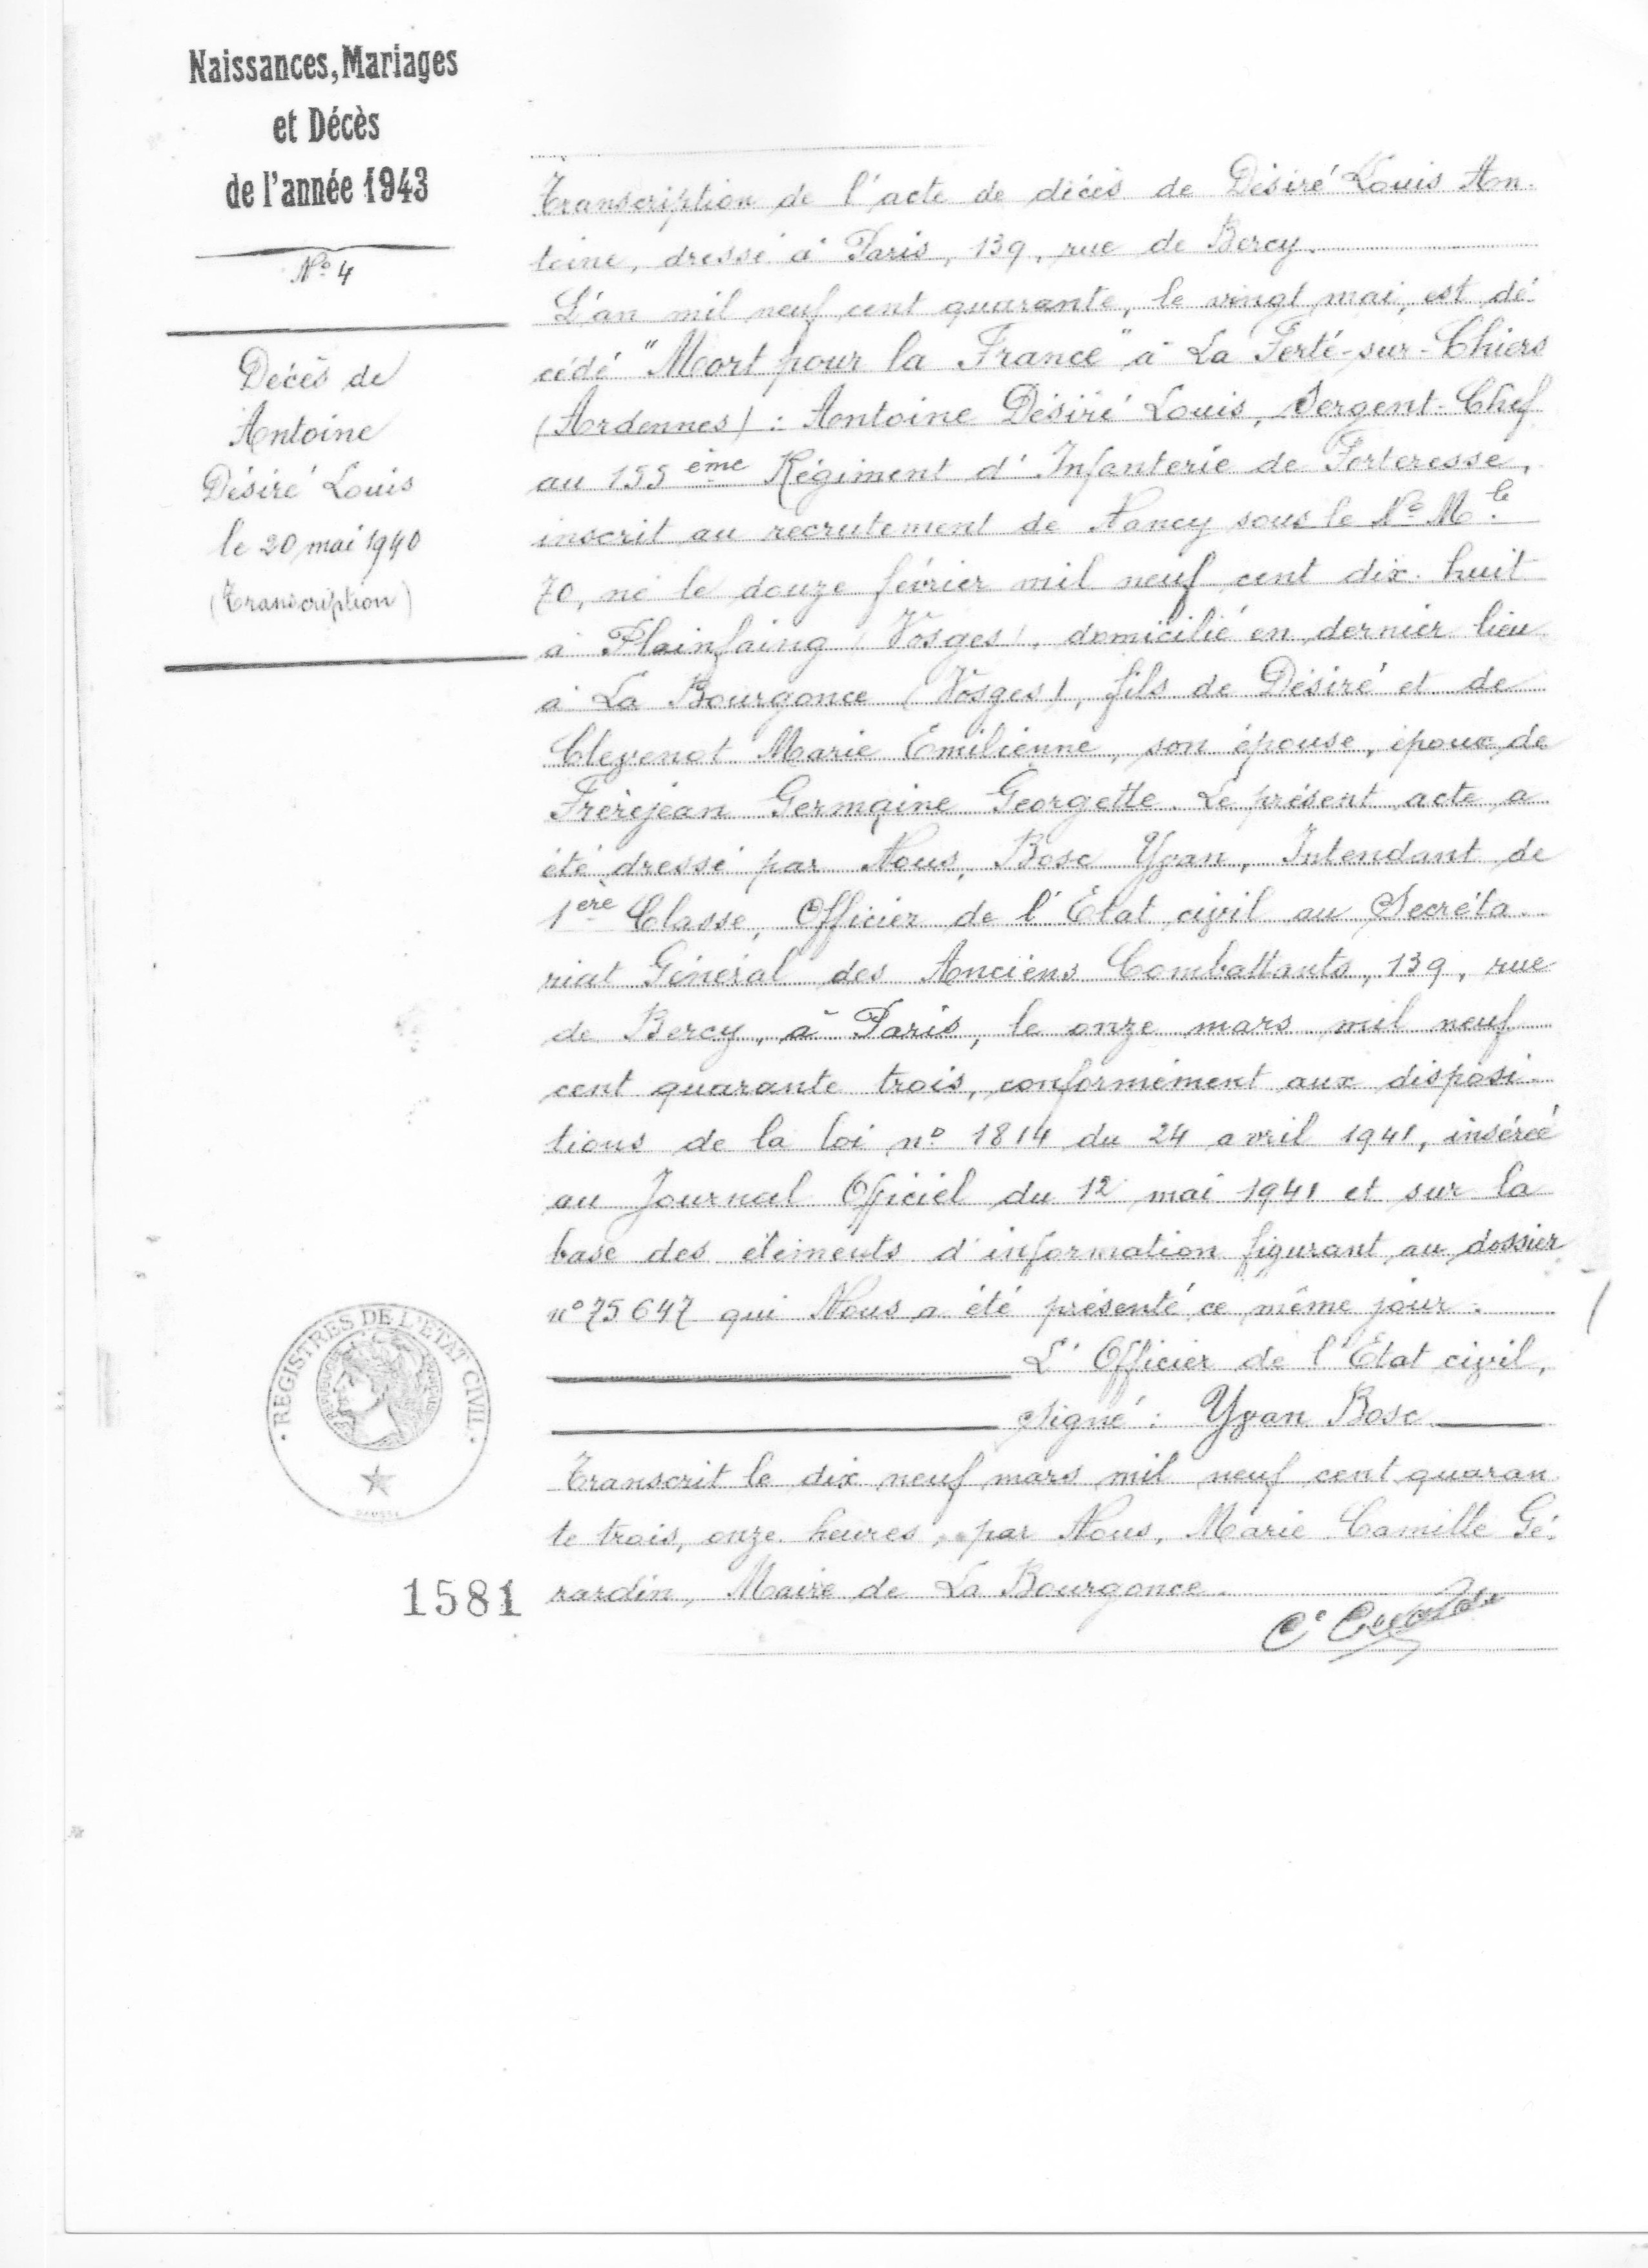 Naissances, Mariages
et Décès
de l'année 1943
N° 4
Décès de
Antoine
Désiré Louis
le 20 mai 1940
(Transcription)
Transcription de l'acte de décès de Désiré Louis An-
toine, dressé à Paris, 139, rue de Bercy.
L'an mil neuf cent quarante, le vingt mai, est dé-
cédé "Mort pour la France" à La Ferté-sur-Chiers
(Ardennes) : Antoine Désiré Louis, Sergent-Chef
au 155ème Régiment d'Infanterie de Forteresse,
inscrit au recrutement de Nancy sous le N° Mle
70, né le douze février mil neuf cent dix-huit
à Plainfaing (Vosges), domicilié en dernier lieu
à La Bourgonce (Vosges), fils de Désiré et de
Clevenot Marie Emilienne, son épouse, époux de
Frèrejean Germaine Georgette. Le présent acte a
été dressé par Nous, Bosc Yvan, Intendant de
1ère Classe, Officier de l'Etat civil au Secréta-
riat Général des Anciens Combattants, 139, rue
de Bercy, à Paris, le onze mars mil neuf
cent quarante trois, conformément aux disposi-
tions de la loi n° 1814 du 24 avril 1941, insérée
au Journal Officiel du 12 mai 1941 et sur la
base des éléments d'information figurant au dossier
n° 75647 qui Nous a été présenté ce même jour.
L'Officier de l'Etat civil,
signé : Yvan Bosc
Transcrit le dix neuf mars mil neuf cent quaran
te trois, onze heures, par Nous, Marie Camille Gé-
rardin, Maire de La Bourgonce.
REGISTRES DE L'ETAT CIVIL
1581